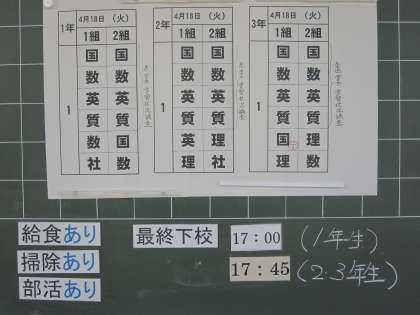 1年 4月18日 (火)
1組 2組
1
国 国
数 数
英 英
質 質
数 国
社 数
2年 4月18日 (火)
1組 2組
1
国 国
数 数
英 英
質 質
英 理
理 社
3年 4月18日 (火)
1組 2組
1
国 国
数 数
英 英
質 質
国 理
理 数
給食あり
掃除あり
部活あり
最終下校
17:00 (1年生)
17:45 (2・3年生)